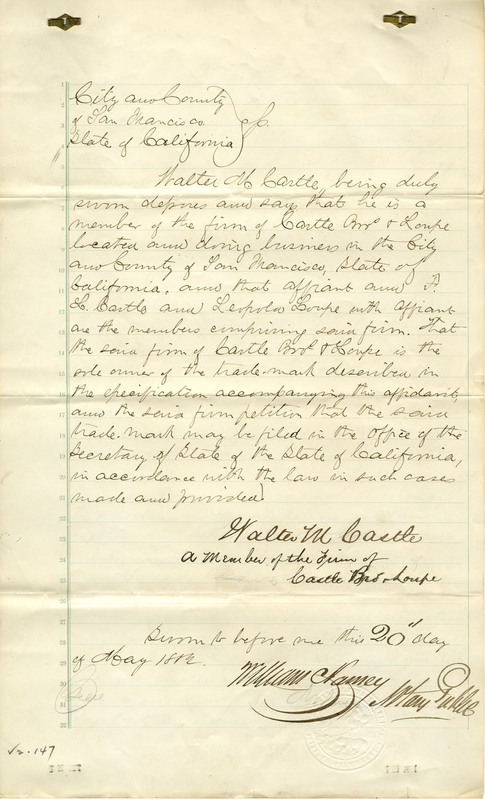 City and County
of San Francisco } ss.
State of California
Walter M Castle, being duly
sworn deposes and says that he is a
member of the firm of Castle Bros & Loupe
located and doing business in the City
and County of San Francisco, State of
California, and that affiant and F.
L. Castle and Leopold Loupe with affiant
are the members comprising said firm. That
the said firm of Castle Bros & Loupe is the
sole owner of the trade-mark described in
the specification accompanying this affidavit,
and the said firm petition that the said
trade-mark may be filed in the Office of the
Secretary of State of the State of California,
in accordance with the law in such cases
made and provided.
Walter M Castle
a Member of the Firm of
Castle Bros & Loupe
Sworn to before me this 20th day
of May 188
William Harney Notary Public
147